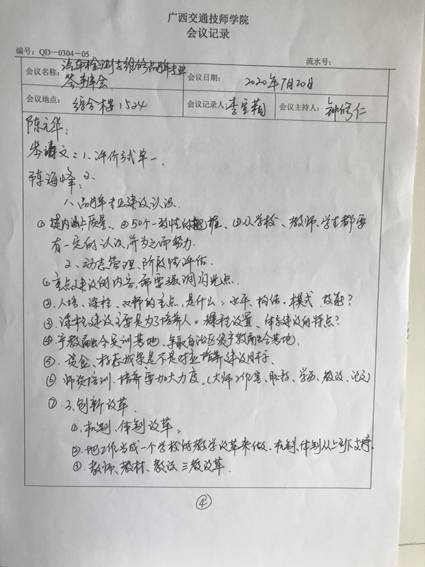 广西交通技师学院
会议记录
编号：QD—0304—05
流水号：
会议名称：汽车检测与维修品牌专业
答辩会
会议日期：2020年7月20日
会议地点：综合楼1524
会议记录人：李宝莉
会议主持人：
陈元华：
岑 文：1、评价式单一
韩海峰：2、
1、品牌专业建设认识
①提内涵质量、②50个一致性的把握、③从学校、教师、学生都要
有一定的认识，并为之而努力
2、动态管理、阶段性评估
①重点建设的内容，需要强调闪光点
②人培、课程、双师的重点，是什么：水平、构造、模式、技能？
③课程建设主要是为了培养人。课程设置、体系建设的特点？
④产教融合实训基地，争取自治区级产教融合基地。
⑤、资金、标志成果是不是对应培养建设用于
⑥师资培训、培养要加大力度、(大师工作室、职称、学历、教改、论文)
⑦ 3、创新改革
①机制、体制改革。
②把工作当成一个学校的教学改革来做，机制、体制从上到下支撑
③教师、教材、教法 三教改革.
④